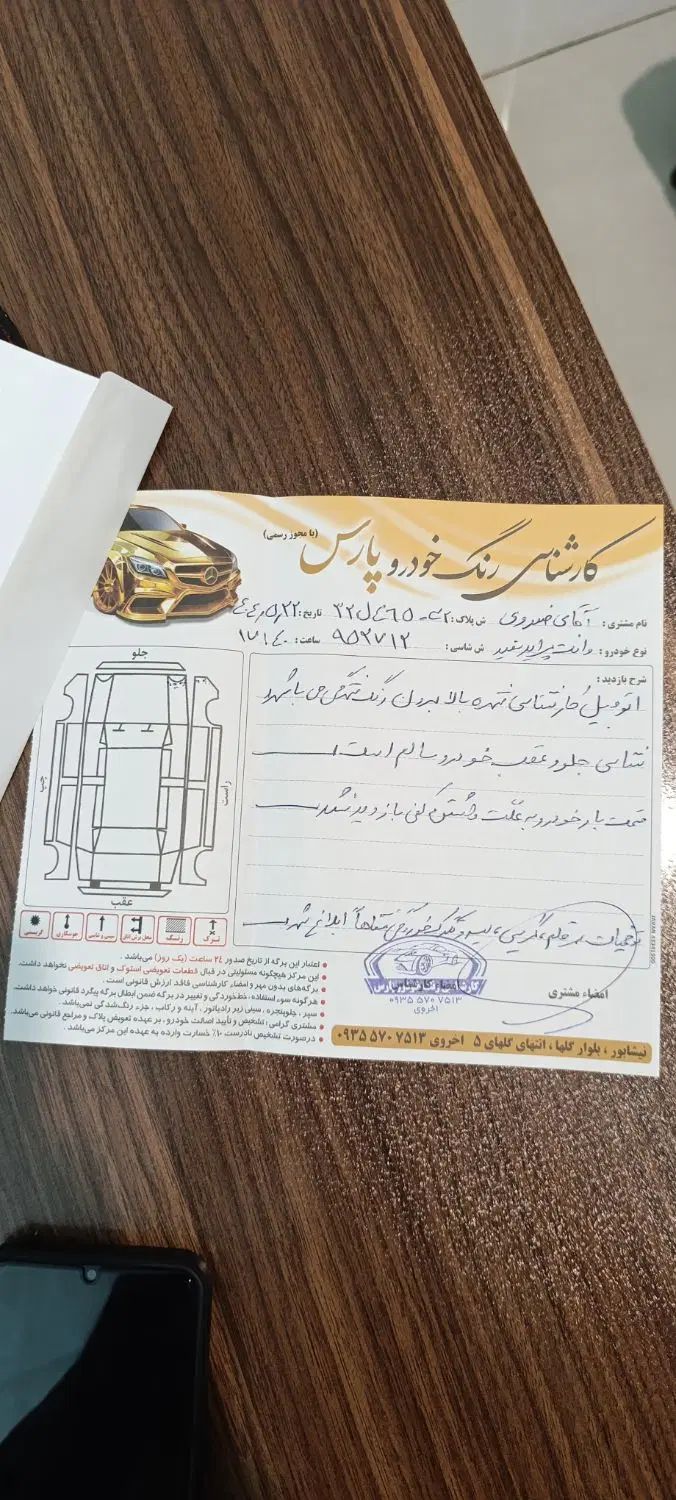 کارشناسی رنگ خودرو پارس (با مجوز رسمی)
نام مشتری : آقای خسروی ش پلاک : ۴۲ - ۳۲ ل ۶۵۴ تاریخ : ۴۰۴٫۵٫۲۲
نوع خودرو : وانت پراید سفید ش شاسی : ۹۵۳۷۱۲ ساعت : ۱۷:۴۰
شرح بازدید :
اتومبیل کارشناسی شده بالا بدون رنگ شدگی می باشد
شاسی جلو و عقب خودرو سالم است
قسمت بار خودرو به علت داشتن کفی بازدید نشد
توضیحات
شفاهاً ابلاغ شد
جلو
راست
چپ
عقب
ترک
رنگ
جوشکاری
امضاء مشتری
امضاء کارشناس
۰۹۳۵ ۵۷۰ ۷۵۱۳
اخروی
• اعتبار این برگه از تاریخ صدور ۲۴ ساعت (یک روز) می‌باشد .
• این مرکز هیچگونه مسئولیتی در قبال قطعات تعویضی استوک و اتاق تعویضی نخواهد داشت.
• برگه‌های بدون مهر و امضاء کارشناسی فاقد ارزش قانونی است .
• هرگونه سوء استفاده ، خط‌خوردگی و تغییر در برگه ضمن ابطال برگه پیگرد قانونی خواهد داشت.
• سپر ، جلوپنجره ، سینی زیر رادیاتور ، آینه و رکاب ، جزء رنگ‌شدگی نمی‌باشد .
• مشتری گرامی : تشخیص و تأیید اصالت خودرو ، بر عهده تعویض پلاک و مراجع قانونی می‌باشد.
• درصورت تشخیص نادرست ۱۰٪ خسارت وارده به عهده این مرکز می‌باشد .
نیشابور ، بلوار گلها ، انتهای گلهای ۵ اخروی ۰۹۳۵ ۵۷۰ ۷۵۱۳